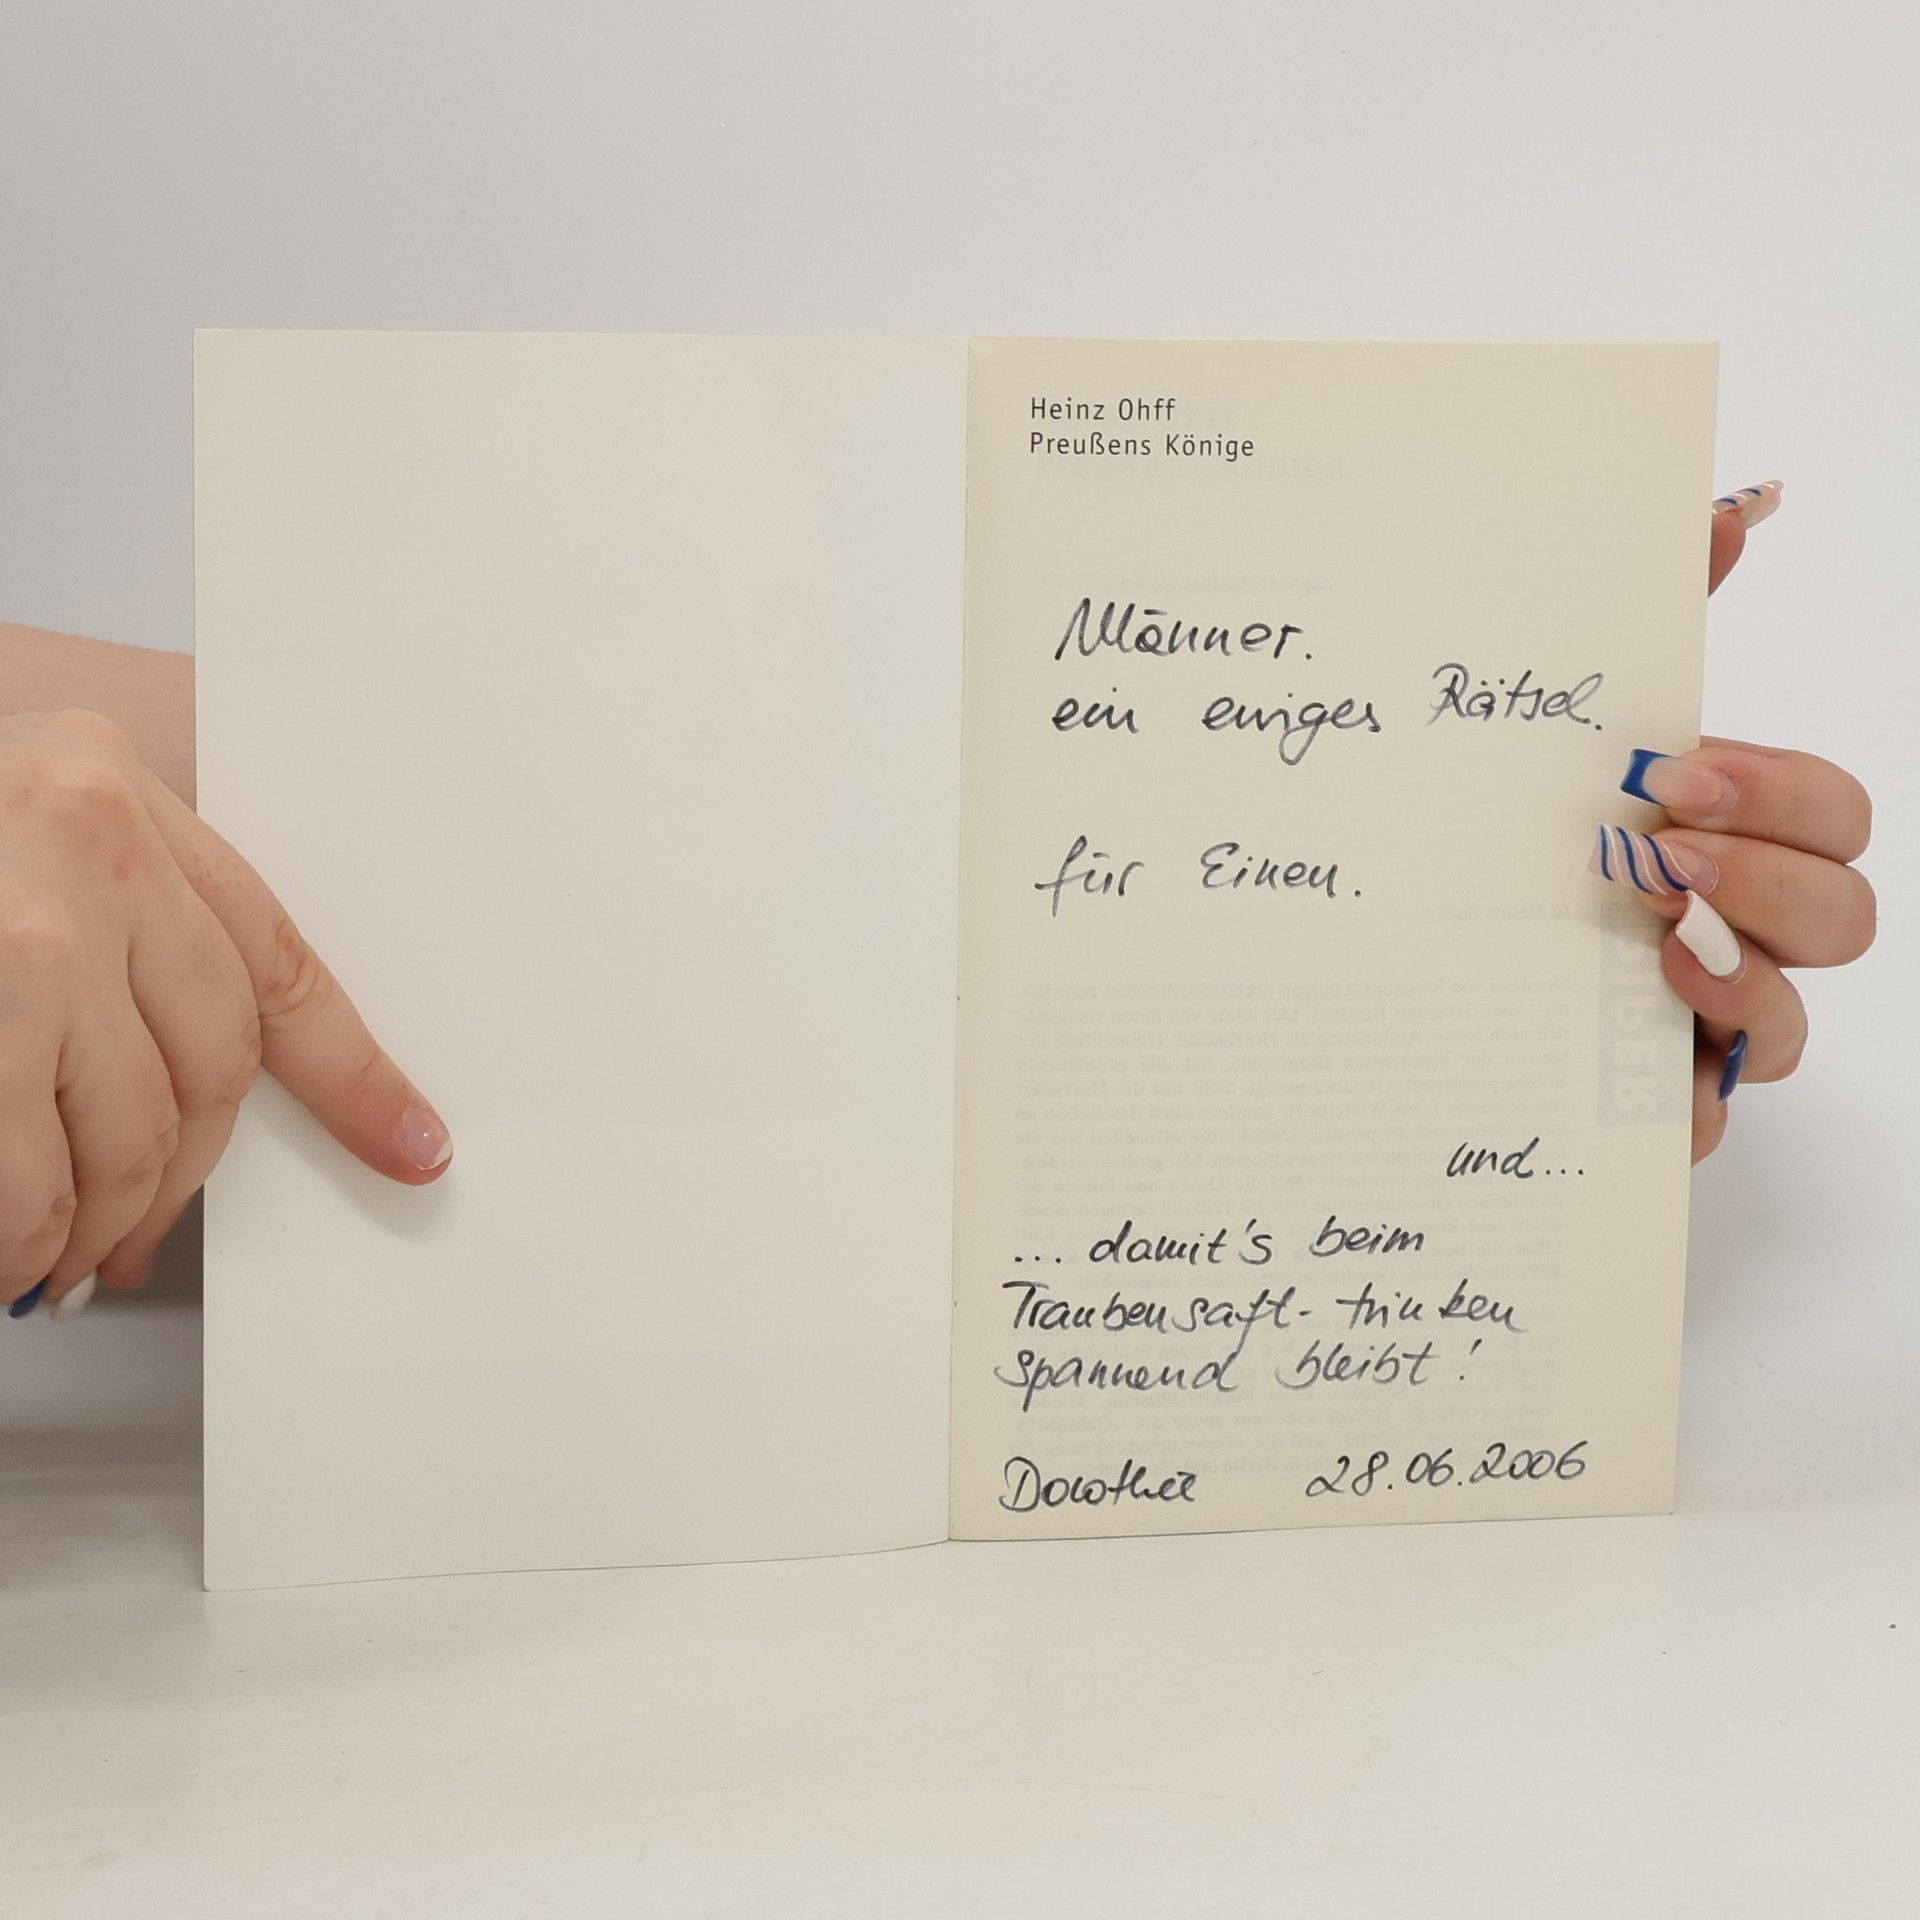 Heinz Ohff
Preußens Könige
Männer.
ein ewiges Rätsel.
für Einen.
und...
... damit's beim
Traubensaft-trinken
spannend bleibt!
Dorothee 28.06.2006